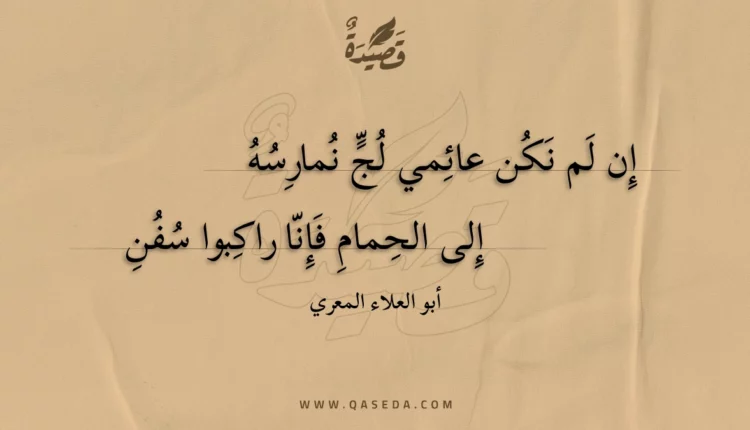 قَصِيدَةٌ
إِن لَم نَكُن عائِمي لُجٍّ نُمارِسُهُ
إِلى الحِمامِ فَإِنّا راكِبوا سُفُنِ
أبو العلاء المعري
WWW.QASEDA.COM